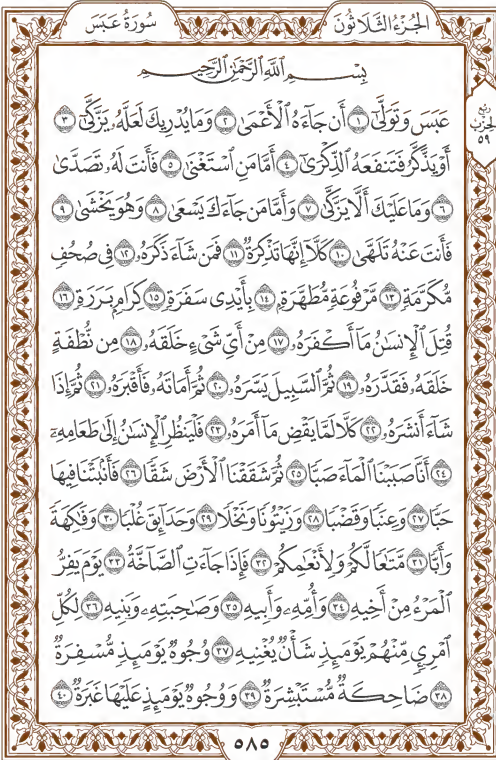 الجُزْءُ الثَّلَاثُونَ
سُورَةُ عَبَسَ
بِسْمِ ٱللَّهِ ٱلرَّحْمَٰنِ ٱلرَّحِيمِ
عَبَسَ وَتَوَلَّىٰٓ ١ أَن جَآءَهُ ٱلْأَعْمَىٰ ٢ وَمَا يُدْرِيكَ لَعَلَّهُۥ يَزَّكَّىٰٓ ٣
أَوْ يَذَّكَّرُ فَتَنفَعَهُ ٱلذِّكْرَىٰٓ ٤ أَمَّا مَنِ ٱسْتَغْنَىٰ ٥ فَأَنتَ لَهُۥ تَصَدَّىٰ
٦ وَمَا عَلَيْكَ أَلَّا يَزَّكَّىٰ ٧ وَأَمَّا مَن جَآءَكَ يَسْعَىٰ ٨ وَهُوَ يَخْشَىٰ ٩
فَأَنتَ عَنْهُ تَلَهَّىٰ ١٠ كَلَّآ إِنَّهَا تَذْكِرَةٌ ١١ فَمَن شَآءَ ذَكَرَهُۥ ١٢ فِى صُحُفٍ
مُّكَرَّمَةٍ ١٣ مَّرْفُوعَةٍ مُّطَهَّرَةٍۭ ١٤ بِأَيْدِى سَفَرَةٍ ١٥ كِرَامٍۭ بَرَرَةٍ ١٦
قُتِلَ ٱلْإِنسَٰنُ مَآ أَكْفَرَهُۥ ١٧ مِنْ أَىِّ شَىْءٍ خَلَقَهُۥ ١٨ مِن نُّطْفَةٍ
خَلَقَهُۥ فَقَدَّرَهُۥ ١٩ ثُمَّ ٱلسَّبِيلَ يَسَّرَهُۥ ٢٠ ثُمَّ أَمَاتَهُۥ فَأَقْبَرَهُۥ ٢١ ثُمَّ إِذَا
شَآءَ أَنشَرَهُۥ ٢٢ كَلَّا لَمَّا يَقْضِ مَآ أَمَرَهُۥ ٢٣ فَلْيَنظُرِ ٱلْإِنسَٰنُ إِلَىٰ طَعَامِهِۦٓ
٢٤ أَنَّا صَبَبْنَا ٱلْمَآءَ صَبًّا ٢٥ ثُمَّ شَقَقْنَا ٱلْأَرْضَ شَقًّا ٢٦ فَأَنۢبَتْنَا فِيهَا
حَبًّا ٢٧ وَعِنَبًا وَقَضْبًا ٢٨ وَزَيْتُونًا وَنَخْلًا ٢٩ وَحَدَآئِقَ غُلْبًا ٣٠ وَفَٰكِهَةً
وَأَبًّا ٣١ مَّتَٰعًا لَّكُمْ وَلِأَنْعَٰمِكُمْ ٣٢ فَإِذَا جَآءَتِ ٱلصَّآخَّةُ ٣٣ يَوْمَ يَفِرُّ
ٱلْمَرْءُ مِنْ أَخِيهِ ٣٤ وَأُمِّهِۦ وَأَبِيهِ ٣٥ وَصَٰحِبَتِهِۦ وَبَنِيهِ ٣٦ لِكُلِّ
ٱمْرِئٍ مِّنْهُمْ يَوْمَئِذٍ شَأْنٌ يُغْنِيهِ ٣٧ وُجُوهٌ يَوْمَئِذٍ مُّسْفِرَةٌ
٣٨ ضَاحِكَةٌ مُّسْتَبْشِرَةٌ ٣٩ وَوُجُوهٌ يَوْمَئِذٍ عَلَيْهَا غَبَرَةٌ ٤٠
ربع
الحزب
٥٩
٥٨٥